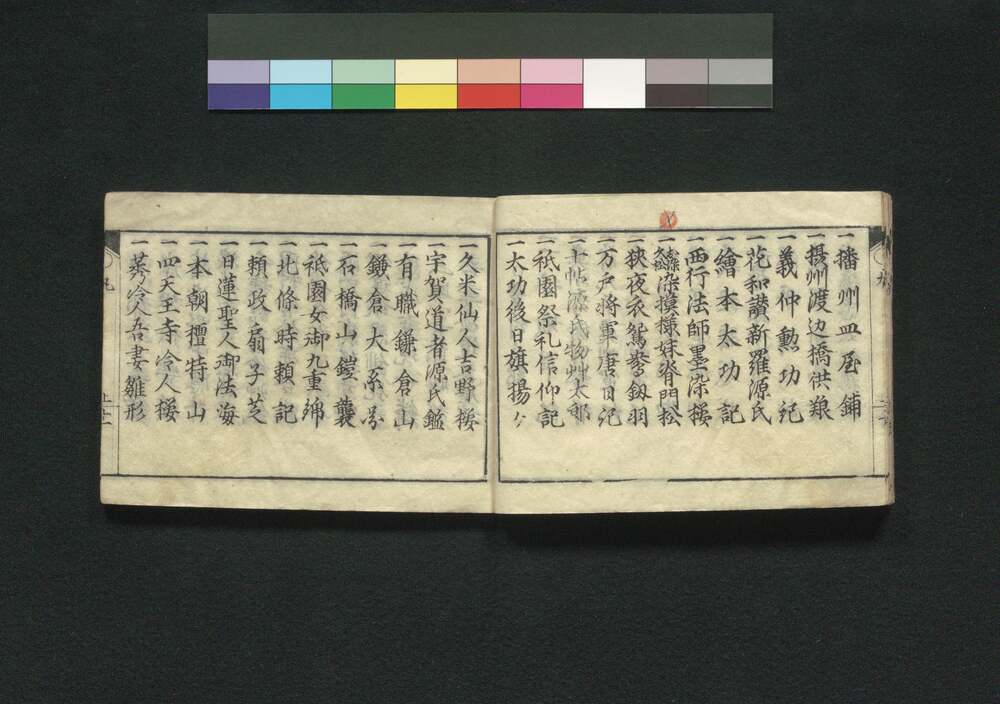 一播州皿屋鋪
一摂州渡辺橋供養
一義仲勲功記
一花和讃新羅源氏
一繪本太功記
一西行法師墨染桜
一染模様妹脊門松
一狭夜衣鴛鴦釼羽
一万戸将軍唐日記
一十帖源氏物艸太郎
一祇園祭礼信仰記
一太功後日旗揚
一久米仙人吉野桜
一宇賀道者源氏鑑
一有職鎌倉山
一鎌倉大系図
一石橋山鎧襲
一祇園女御九重錦
一北條時頼記
一頼政扇子芝
一日蓮聖人御法海
一本朝檀特山
一四天王寺冷人桜
一莠冷人吾妻雛形